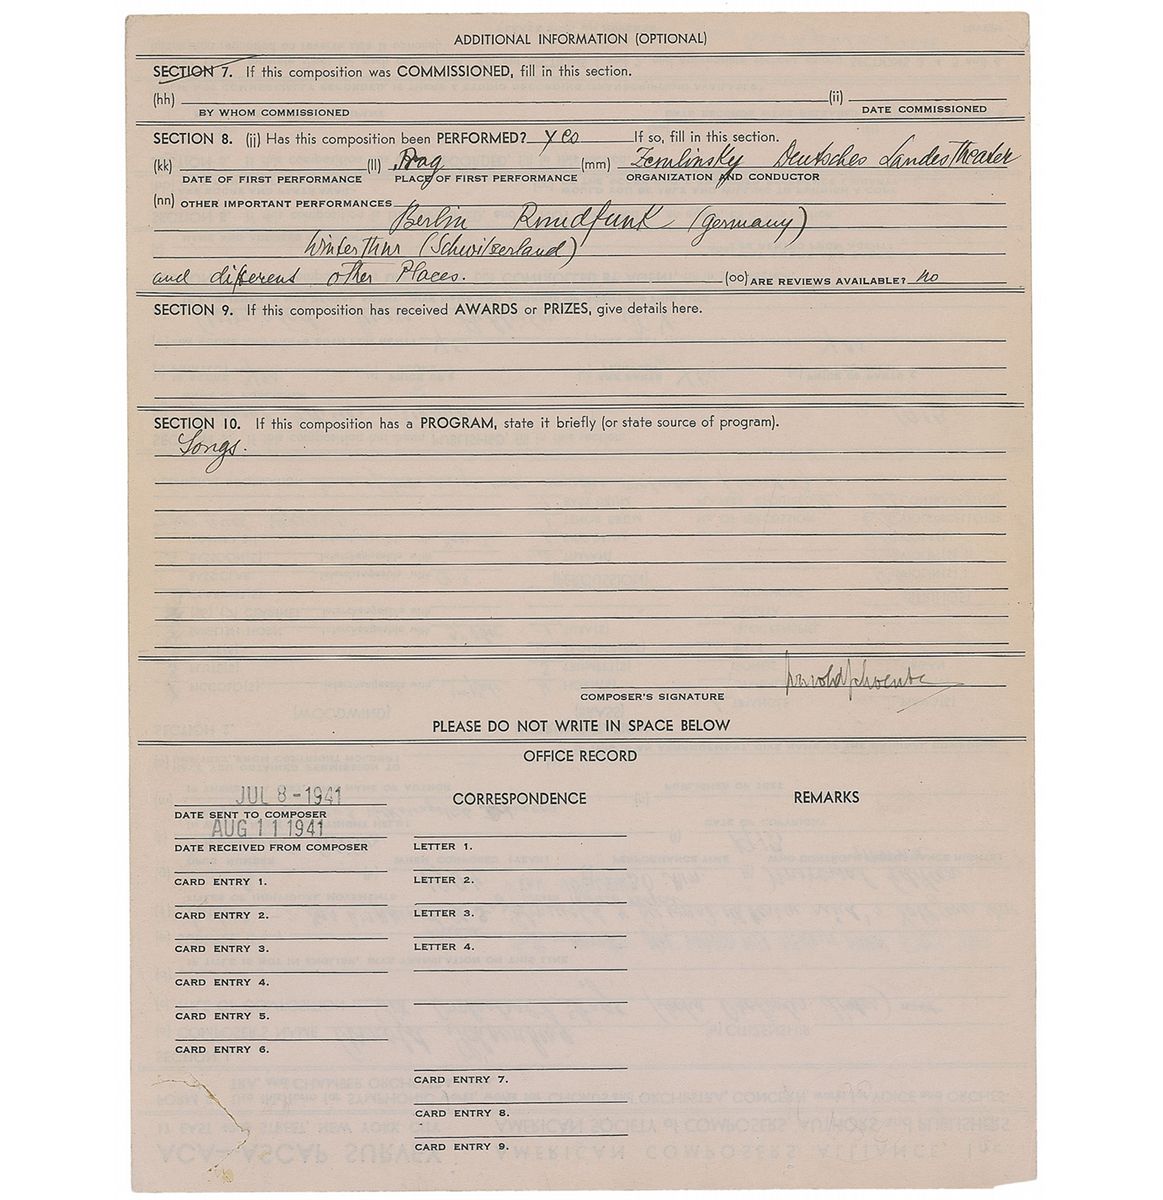 ADDITIONAL INFORMATION (OPTIONAL)
SECTION 7. If this composition was COMMISSIONED, fill in this section.
(hh) (ii)
BY WHOM COMMISSIONED DATE COMMISSIONED
SECTION 8. (jj) Has this composition been PERFORMED? Yes If so, fill in this section.
(kk) (ll) Prag (mm) Zemlinsky Deutsches Landestheater
DATE OF FIRST PERFORMANCE PLACE OF FIRST PERFORMANCE ORGANIZATION AND CONDUCTOR
(nn) OTHER IMPORTANT PERFORMANCES Berlin Rundfunk (Germany)
Winterthur (Schwitzerland)
and different other Places. (oo) ARE REVIEWS AVAILABLE? no
SECTION 9. If this composition has received AWARDS or PRIZES, give details here.
SECTION 10. If this composition has a PROGRAM, state it briefly (or state source of program).
Songs.
Arnold Schoenberg
COMPOSER'S SIGNATURE
PLEASE DO NOT WRITE IN SPACE BELOW
OFFICE RECORD
JUL 8 - 1941 CORRESPONDENCE REMARKS
DATE SENT TO COMPOSER
AUG 11 1941
DATE RECEIVED FROM COMPOSER LETTER 1.
CARD ENTRY 1. LETTER 2.
CARD ENTRY 2. LETTER 3.
CARD ENTRY 3. LETTER 4.
CARD ENTRY 4.
CARD ENTRY 5.
CARD ENTRY 6.
CARD ENTRY 7.
CARD ENTRY 8.
CARD ENTRY 9.